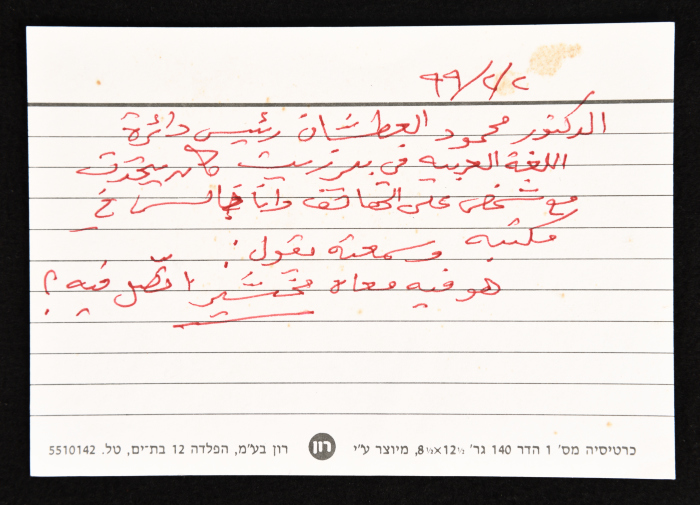 ٩٩/٢/٢
الدكتور محمود العطشان رئيس دائرة
اللغة العربيه في بيرزيت كان يتحدث
مع شخص على الهاتف وانا جالس في
مكتبه وسمعته يقول:
هو فيه معاه مُخَشْيِر اتصل فيه؟
כרטיסיה מס' 1 הדר 140 גר' 12½×8½, מיוצר ע"י רון רון בע"מ, הפלדה 12 בת־ים, טל. 5510142